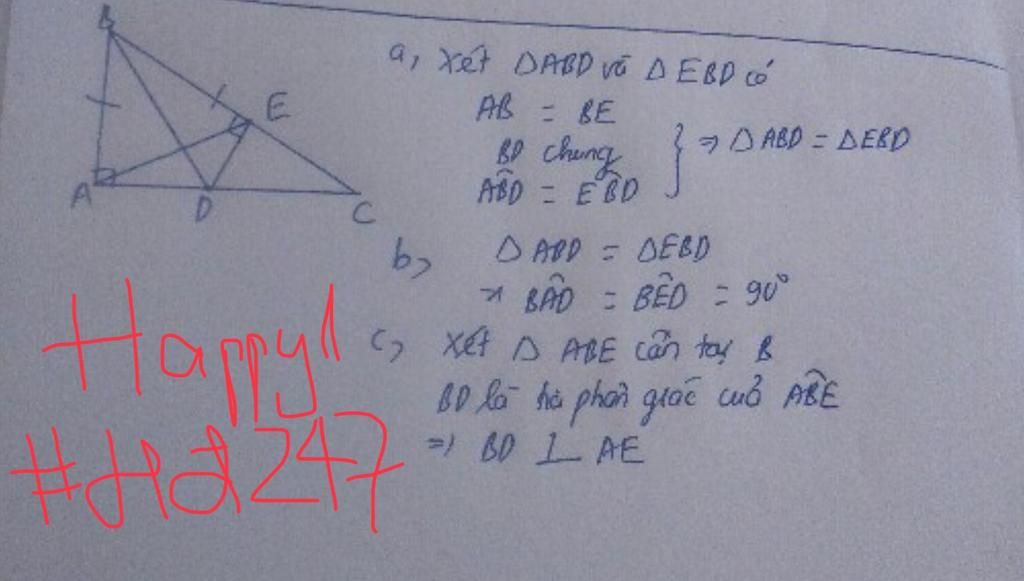 B
E
A
D
C
a, Xét △ABD và △EBD có
AB = BE
BD chung
ABD̂ = EB̂D
⇒ △ABD = △EBD
b, △ABD = △EBD
⇒ BÂD = BÊD = 90°
c, Xét △ ABE cân tại B
BD là phân giác của AB̂E
⇒ BD ⊥ AE
Happy!!
#Hđ247